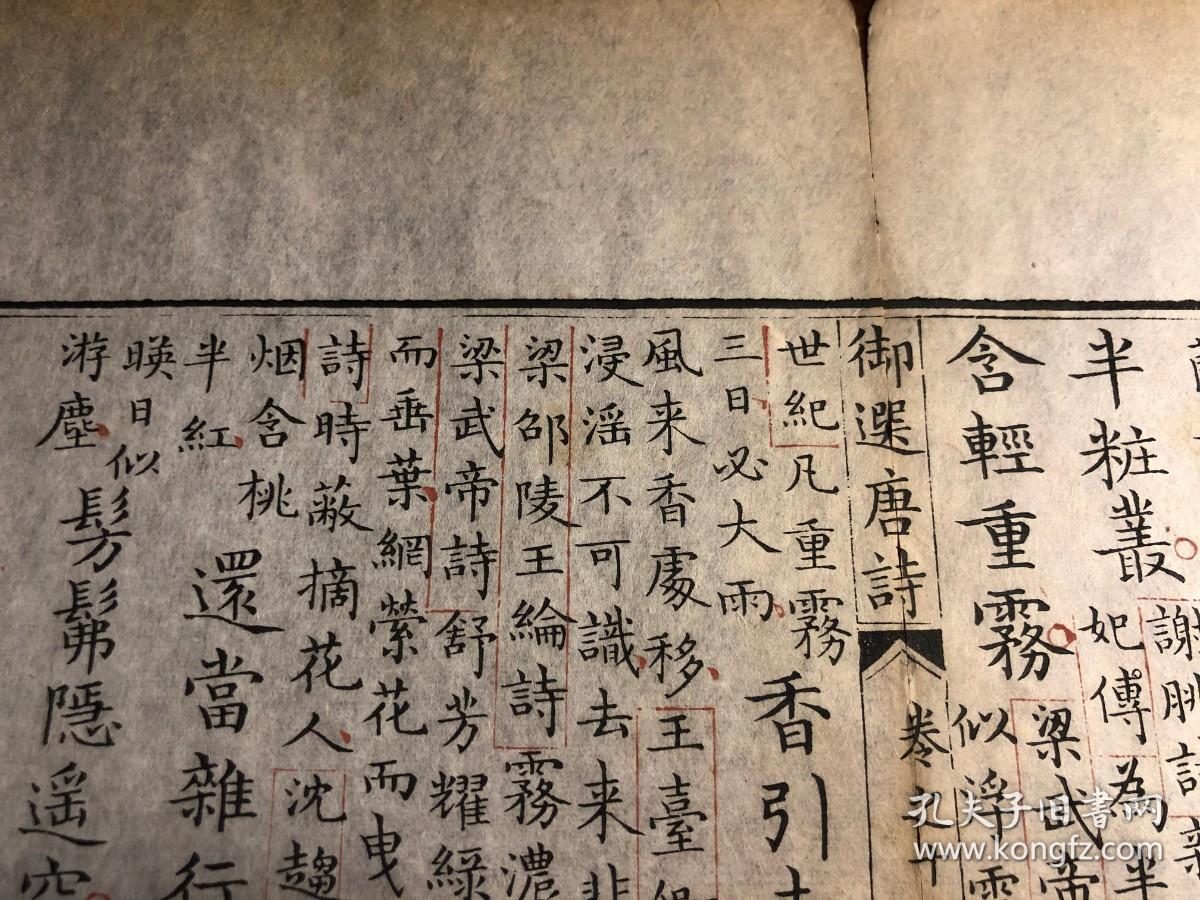 半粧叢
謝朓詩
妃傅為半
含輕重霧
梁武帝
似浮雲
御選唐詩
卷
世紀凡重霧
三日必大雨
香引
風来香處移
王臺
浸滛不可識去来非
梁邵陵王綸詩霧濃
梁武帝詩舒芳耀綠
而垂葉網縈花而曳
詩時蔽摘花人
沈趨
烟含桃
半紅
還當雜行
暎日似
游塵
髣髴隱遥空
孔夫子旧書网
www.kongfz.com